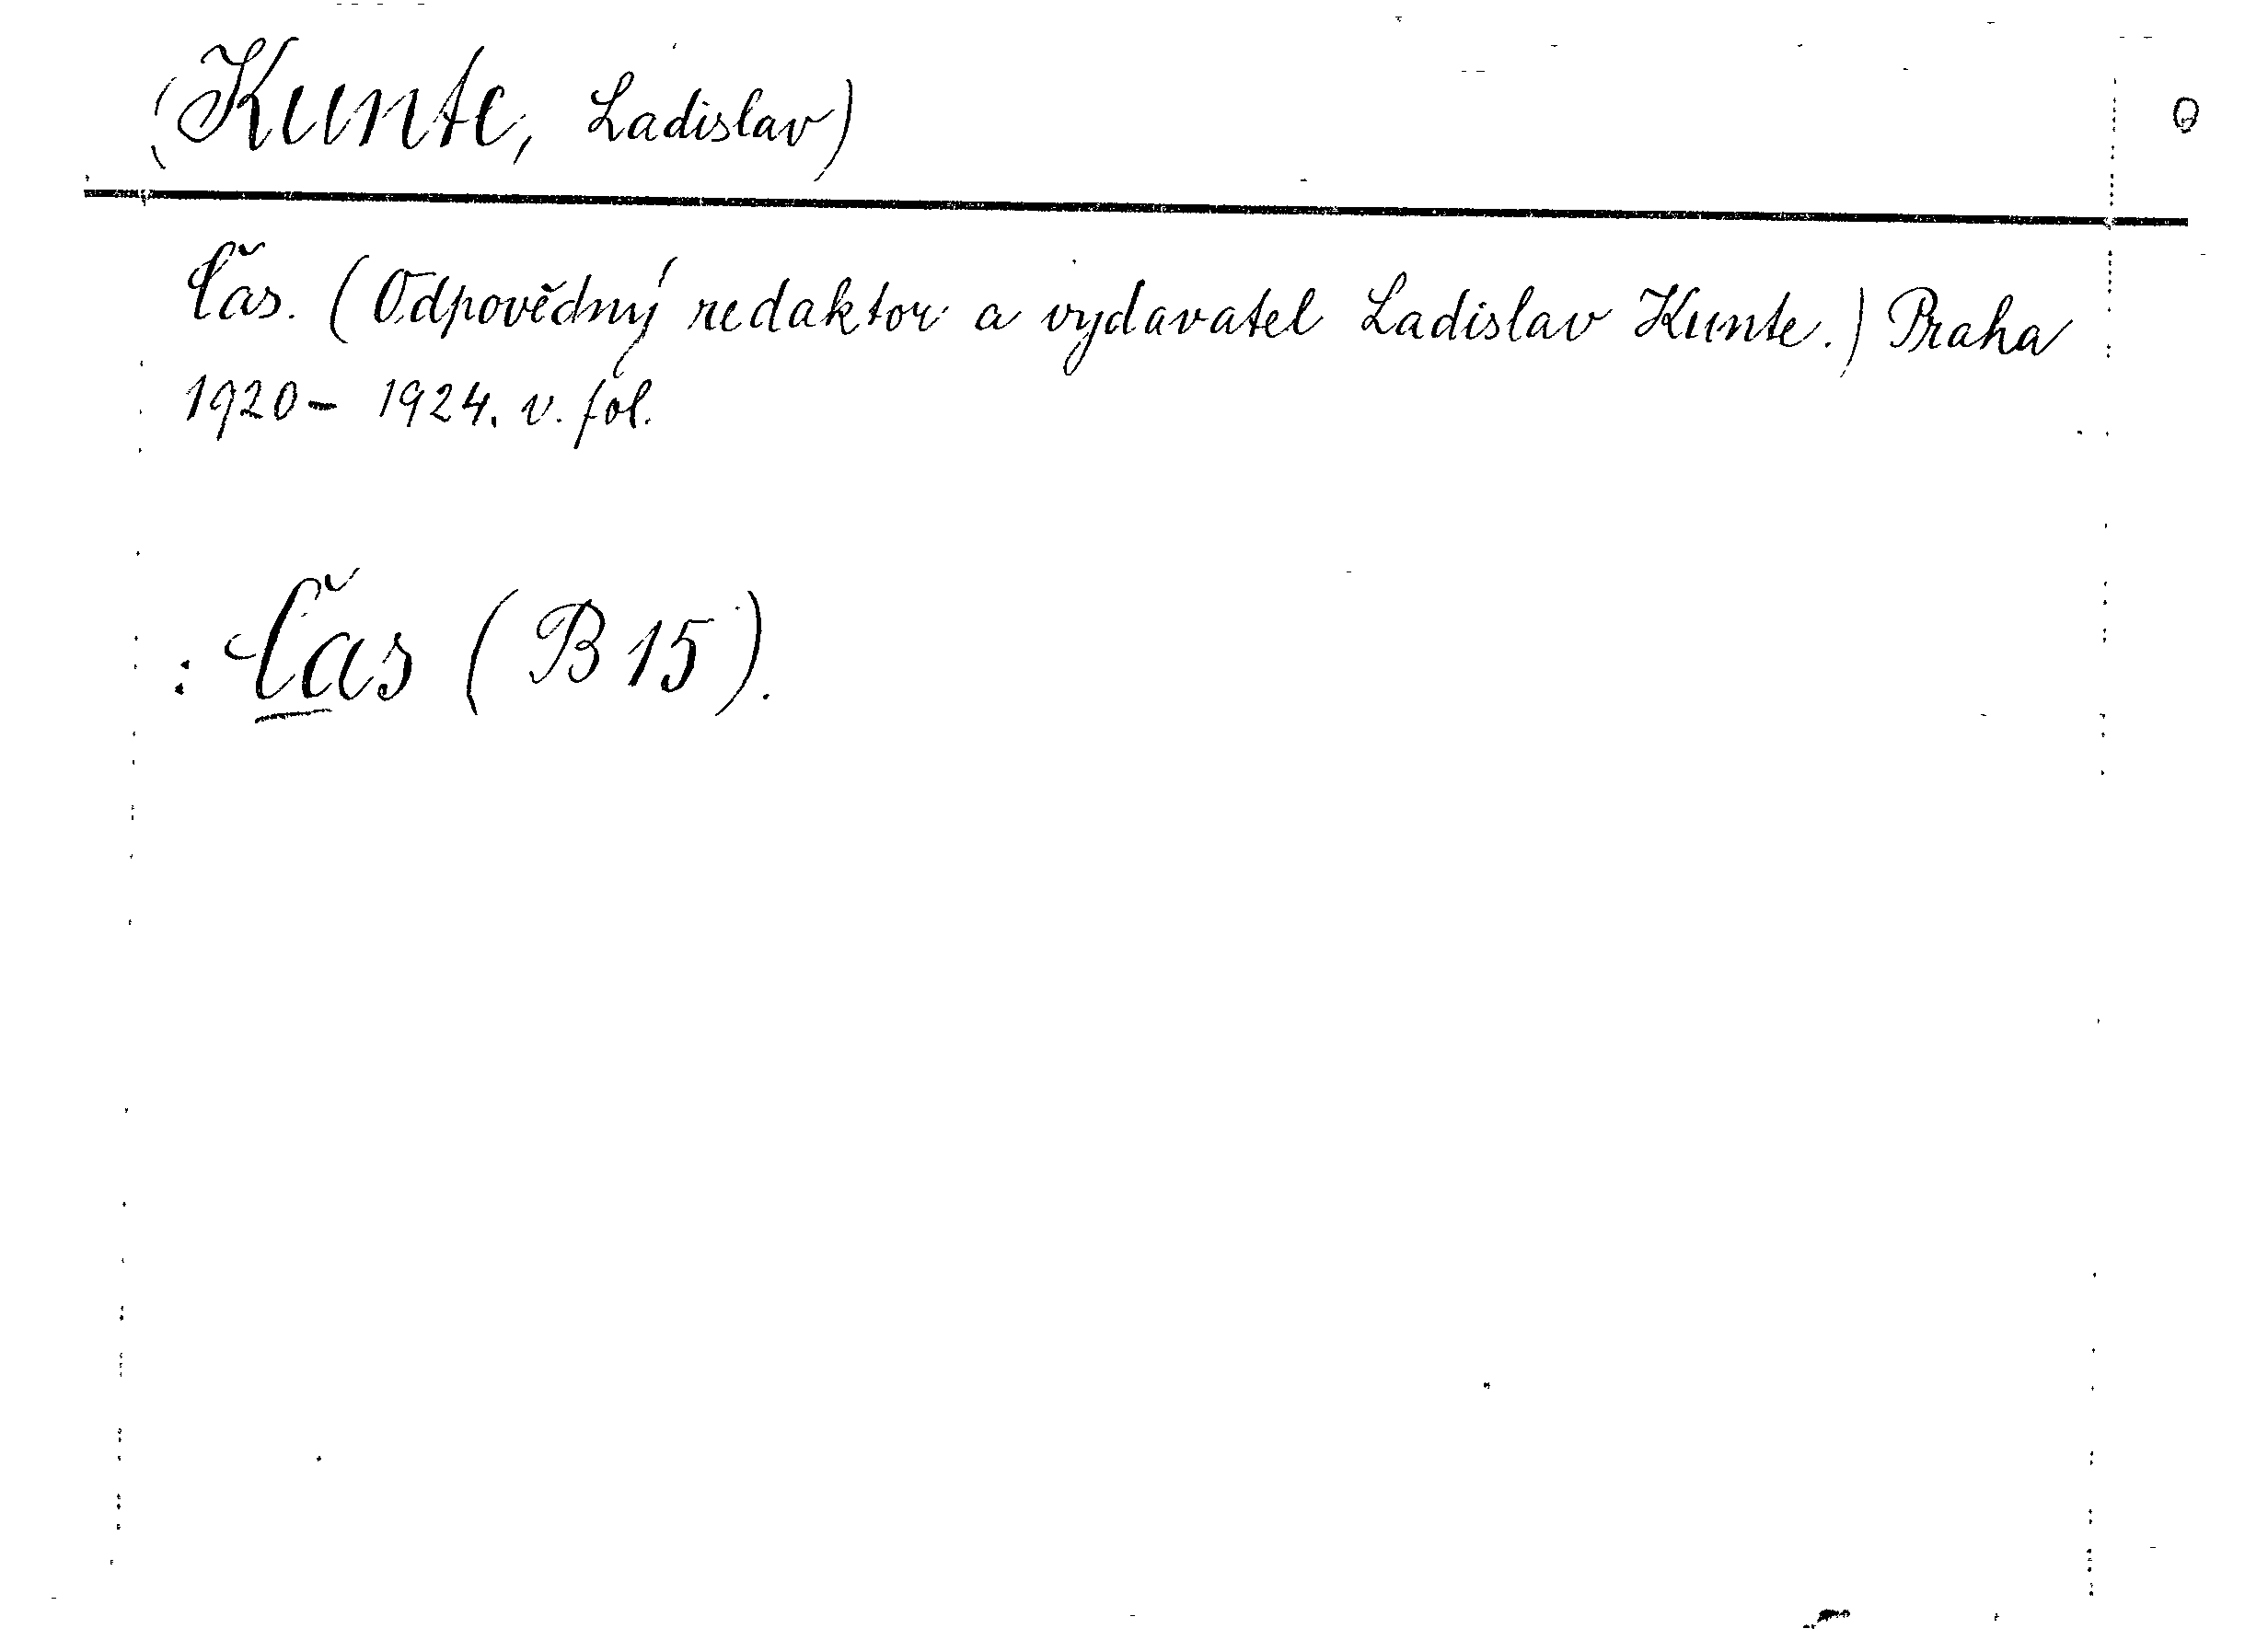 (Kunte, Ladislav)
Čas. (Odpovědný redaktor a vydavatel Ladislav Kunte.) Praha
1920 - 1924. v. fol.
: Čas (B 15).